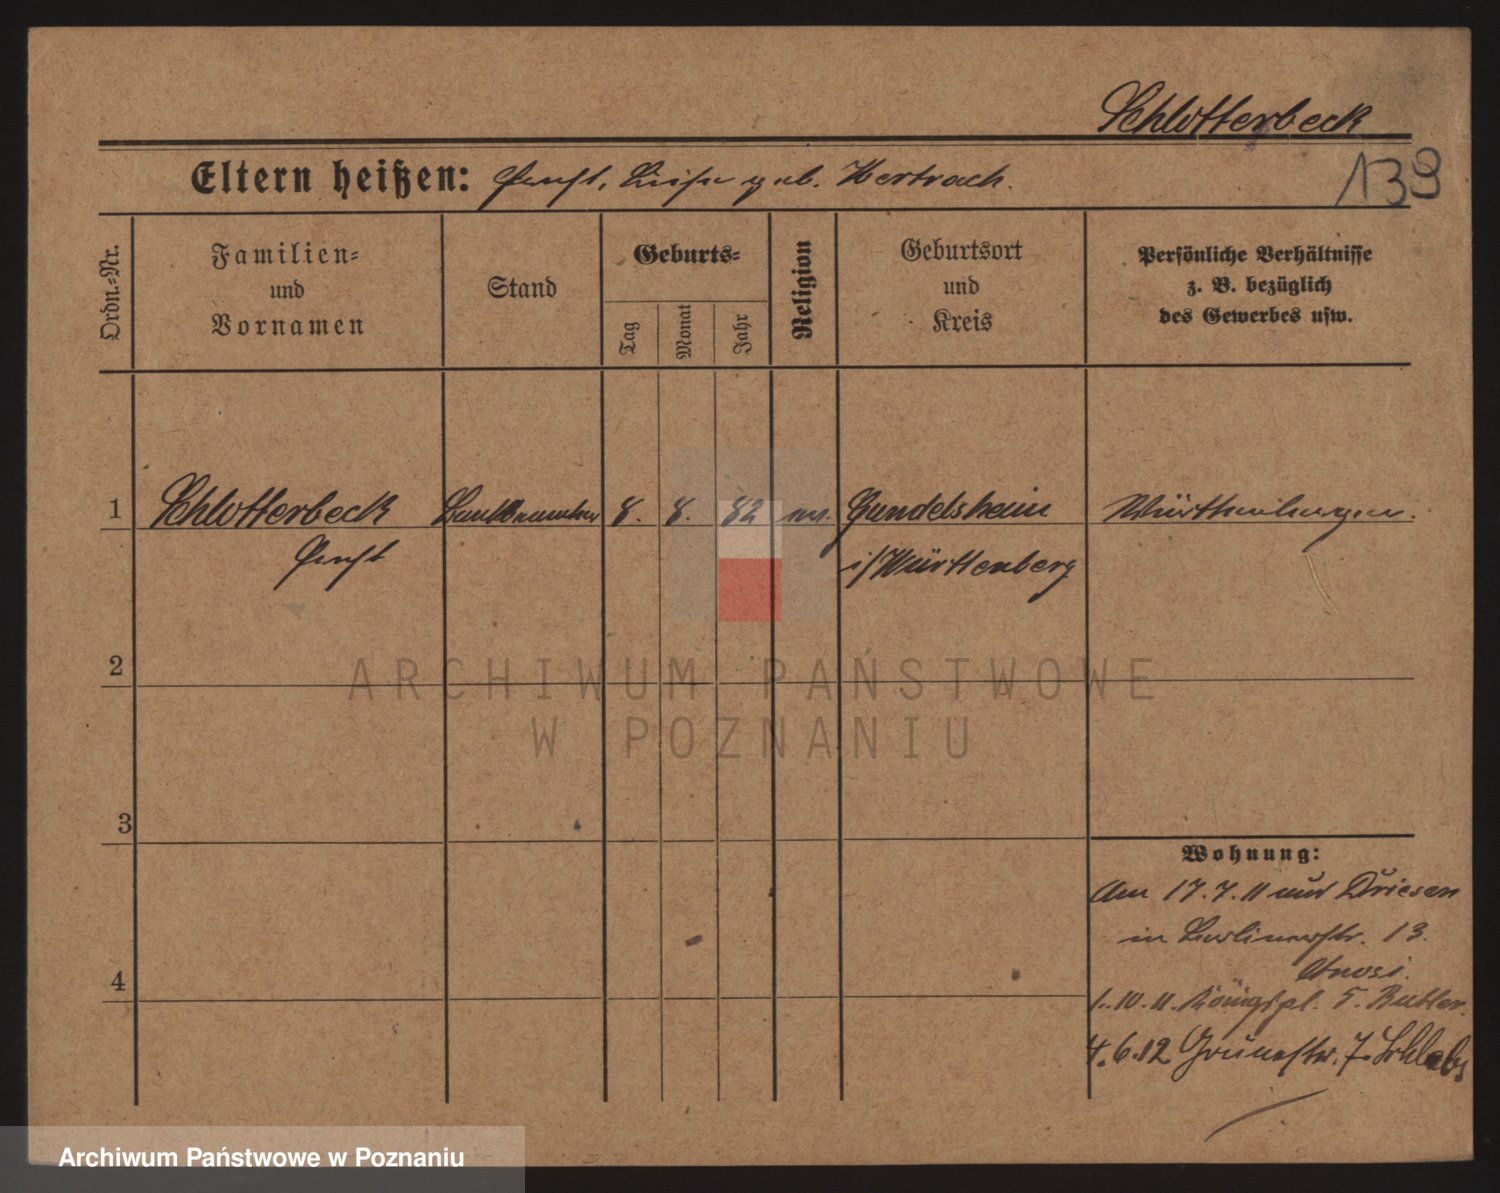 Schlotterbeck
139
Eltern heißen: Ernst, Luise geb. Hertrach.
Ordn.-Nr.
Familien-
und
Vornamen
Stand
Geburts-
Tag
Monat
Jahr
Religion
Geburtsort
und
Kreis
Persönliche Verhältnisse
z. B. bezüglich
des Gewerbes usw.
1 Schlotterbeck Bankbeamter 8. 8. 82 Gundelsheim Württemberger.
Ernst i/Württemberg
2
3
4
Wohnung:
Am 17.7.11 aus Driesen
in Berlinerstr. 13.
1.10.11. Königspl. 5. Butler.
4.6.12 Grünestr. 7.
ARCHIWUM PAŃSTWOWE
W POZNANIU
Archiwum Państwowe w Poznaniu